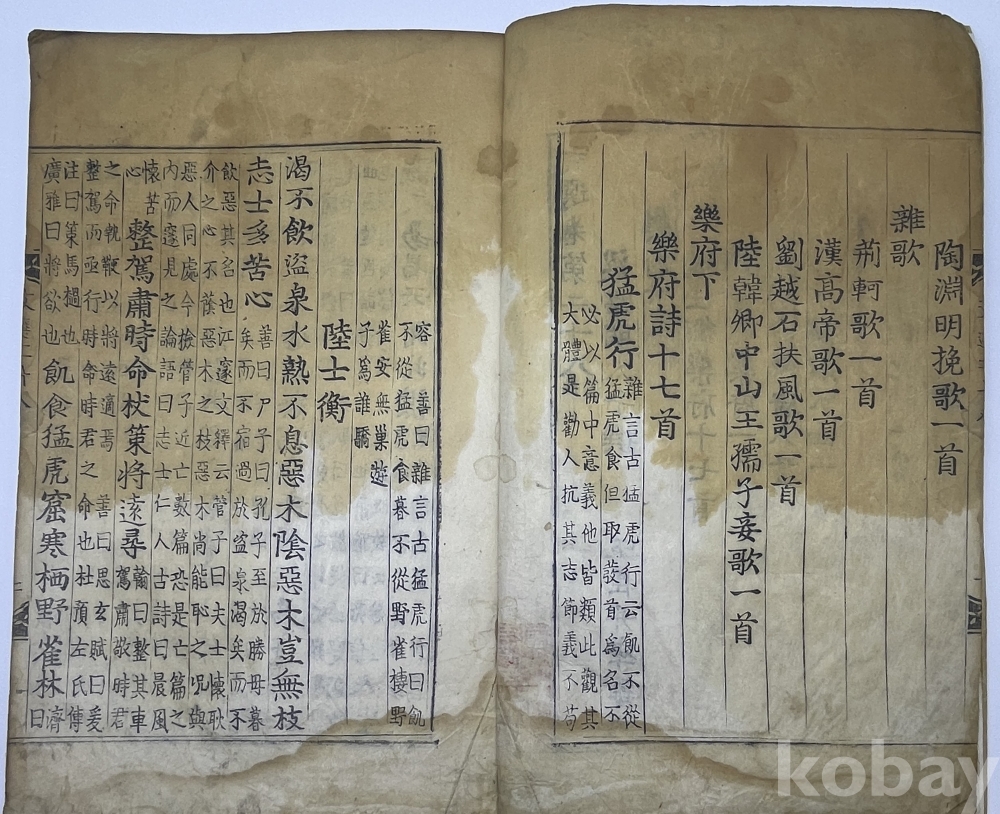 陶淵明挽歌一首
雜歌
荊軻歌一首
漢高帝歌一首
劉越石扶風歌一首
陸韓卿中山王孺子妾歌一首
樂府下
樂府詩十七首
猛虎行 雜言古猛虎行云飢不從
猛虎食但取發首爲名不
必以篇中意義他皆類此觀其
大體是勸人抗其志節義不苟
容善曰雜言古猛虎行曰飢
不從猛虎食暮不從野雀棲野
雀安無巢遊
子爲誰驕
陸士衡
渴不飲盜泉水熱不息惡木陰惡木豈無枝
志士多苦心 善曰尸子曰孔子至於勝母暮
矣而不宿過於盜泉渴矣而不
飲惡其名也江邃文釋云管子曰夫士懷耿
介之心不蔭惡木之枝惡木尚能恥之況與
惡人同處今檢管子近亡數篇恐是亡篇之
內而邃見之論語曰志士仁人古詩曰晨風
懷苦
心 整駕肅時命杖策將遠尋 翰曰整其車
駕肅敬時君
之命執鞭以將遠適焉 善曰思玄賦曰爰
整駕而亟行時命時君之命也杜預左氏傳
注曰策馬檛也
廣雅曰將欲也 飢食猛虎窟寒栖野雀林 濟曰
kobay